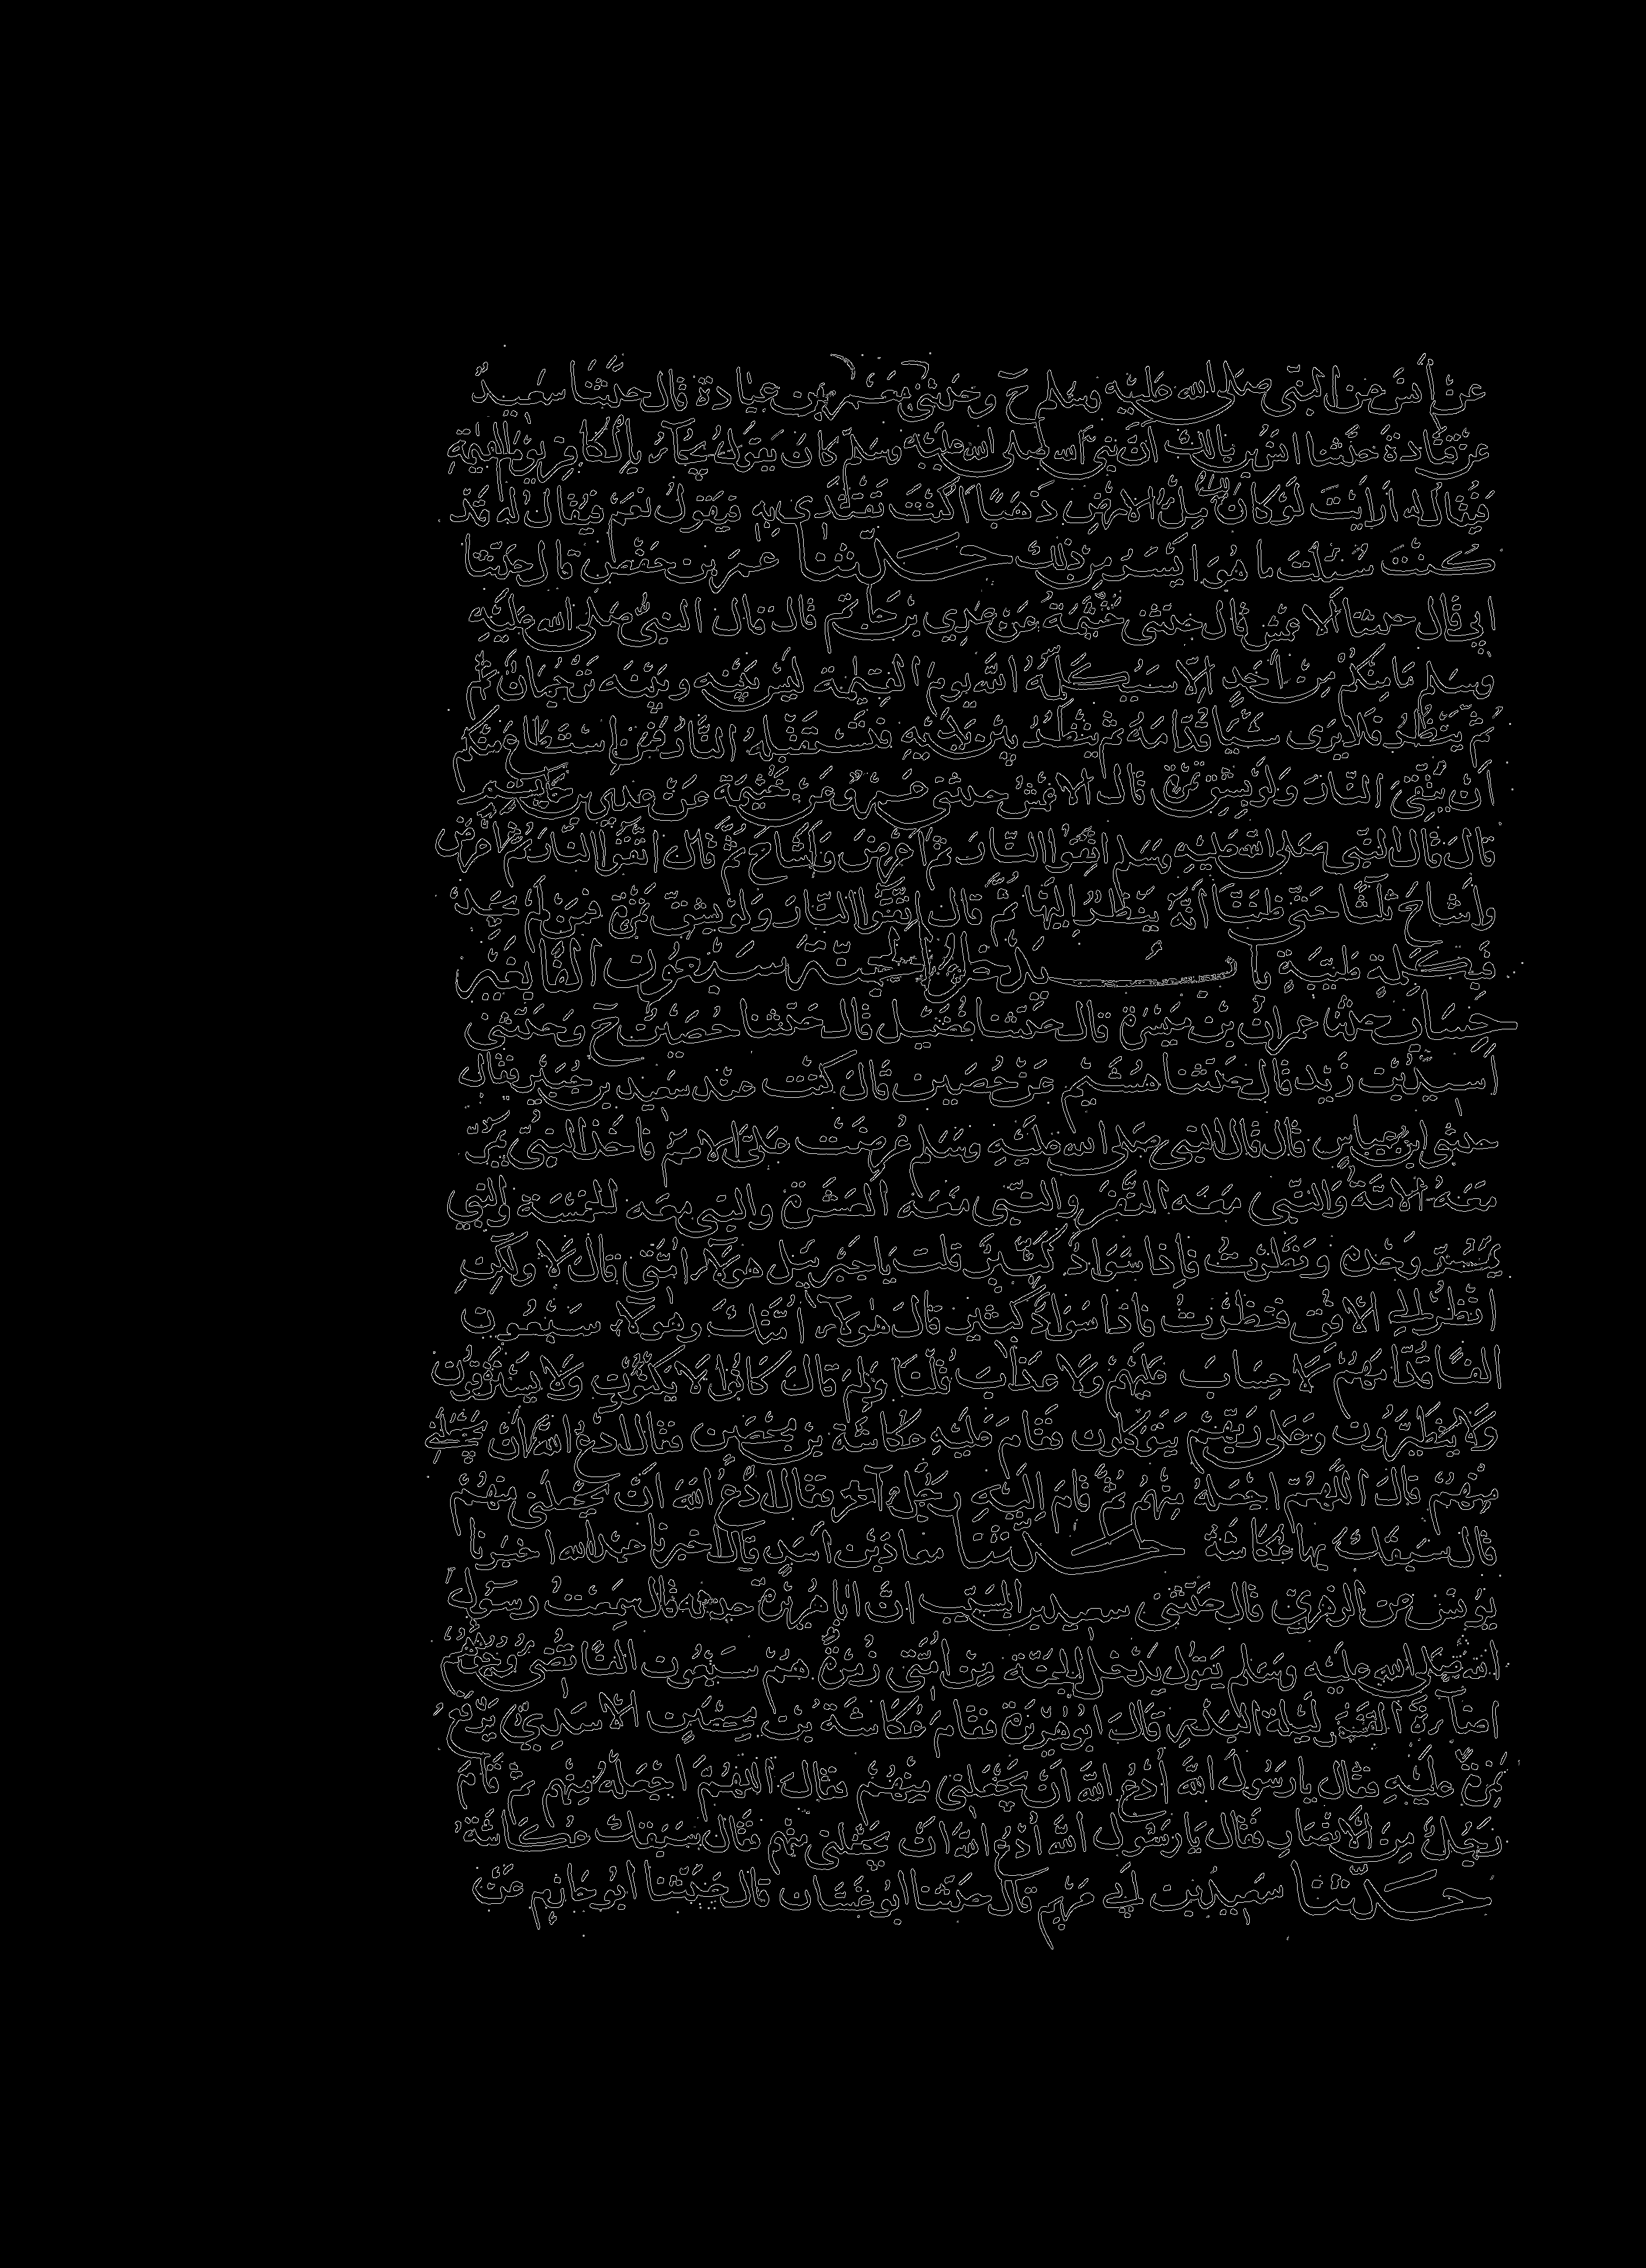 عن أنس عن النبي صلى الله عليه وسلم ح وحدثني معمر بن عبادة قال حدثنا سعيد
عن قتادة حدثنا انس بن مالك ان نبي الله صلى الله عليه وسلم كان يقول يجاء بالكافر يوم القيمة
فيقال له ارايت لو كان لك مل الارض ذهبا اكنت تفتدي به فيقول نعم فيقال له قد
كنت سئلت ما هو ايسر من ذلك حدثنا عمر بن حفص قال حدثنا
ابي قال حدثنا الاعمش قال حدثني خيثمة عن عدي بن حاتم قال قال النبي صلى الله عليه
وسلم ما منكم من أحد إلا سيكلمه الله يوم القيمة ليس بينه وبينه ترجمان ثم
ثم ينظر فلا يرى شيا قدامه ثم ينظر بين يديه فتستقبله النار فمن استطاع منكم
أن يتقي النار ولو بشق تمرة قال الاعمش حدثني عمرو عن خيثمة عن عدي بن حاتم
قال قال النبي صلى الله عليه وسلم اتقوا النار ثم اعرض وأشاح ثم قال اتقوا النار ثم اعرض
واشاح ثلثا حتى ظننا أنه ينظر اليها ثم قال اتقوا النار ولو بشق تمرة فمن لم يجد
فبكلمة طيبة باب يدخل الجنة سبعون الفا بغير
حساب حدثنا عمران بن ميسرة قال حدثنا فضيل قال حدثنا حصين ح وحدثني
اسيد بن زيد قال حدثنا هشيم عن حصين قال كنت عند سعيد بن جبير فقال
حدثني ابن عباس قال قال النبي صلى الله عليه وسلم عرضت على الامم فاخذ النبي يمر
معه الامة والنبي معه النفر والنبي معه العشرة والنبي معه الخمسة والنبي
يمر وحده ونظرت فاذا سواد كثير قلت يا جبريل هولاء امتي قال لا ولكن
انظر الى الافق فنظرت فاذا سواد كثير قال هولاء امتك وهولاء سبعون
الفا قدامهم لا حساب عليهم ولا عذاب قلنا ولم قال كانوا لا يكتوون ولا يسترقون
ولا يتطيرون وعلى ربهم يتوكلون فقام اليه عكاشة بن محصن فقال ادع الله ان يجعلني
منهم قال اللهم اجعله منهم ثم قام إليه رجل آخر فقال ادع الله ان يجعلني منهم
قال سبقك بها عكاشة حدثنا معاذ بن أسد قال اخبرنا عبد الله اخبرنا
يونس عن الزهري قال حدثني سعيد بن المسيب ان ابا هريرة حدثه قال سمعت رسول
الله صلى الله عليه وسلم يقول يدخل الجنة من امتي زمرة هم سبعون الفا تضي وجوههم
اضاءة القمر ليلة البدر قال ابو هريرة فقام عكاشة بن محصن الاسدي يرفع
نمرة عليه فقال يا رسول الله ادع الله ان يجعلني منهم فقال اللهم اجعله منهم ثم قام
رجل من الانصار فقال يا رسول الله ادع الله ان يجعلني منهم فقال سبقك عكاشة
حدثنا سعيد بن ابي مريم قال حدثنا ابو غسان قال حدثنا ابو حازم عن